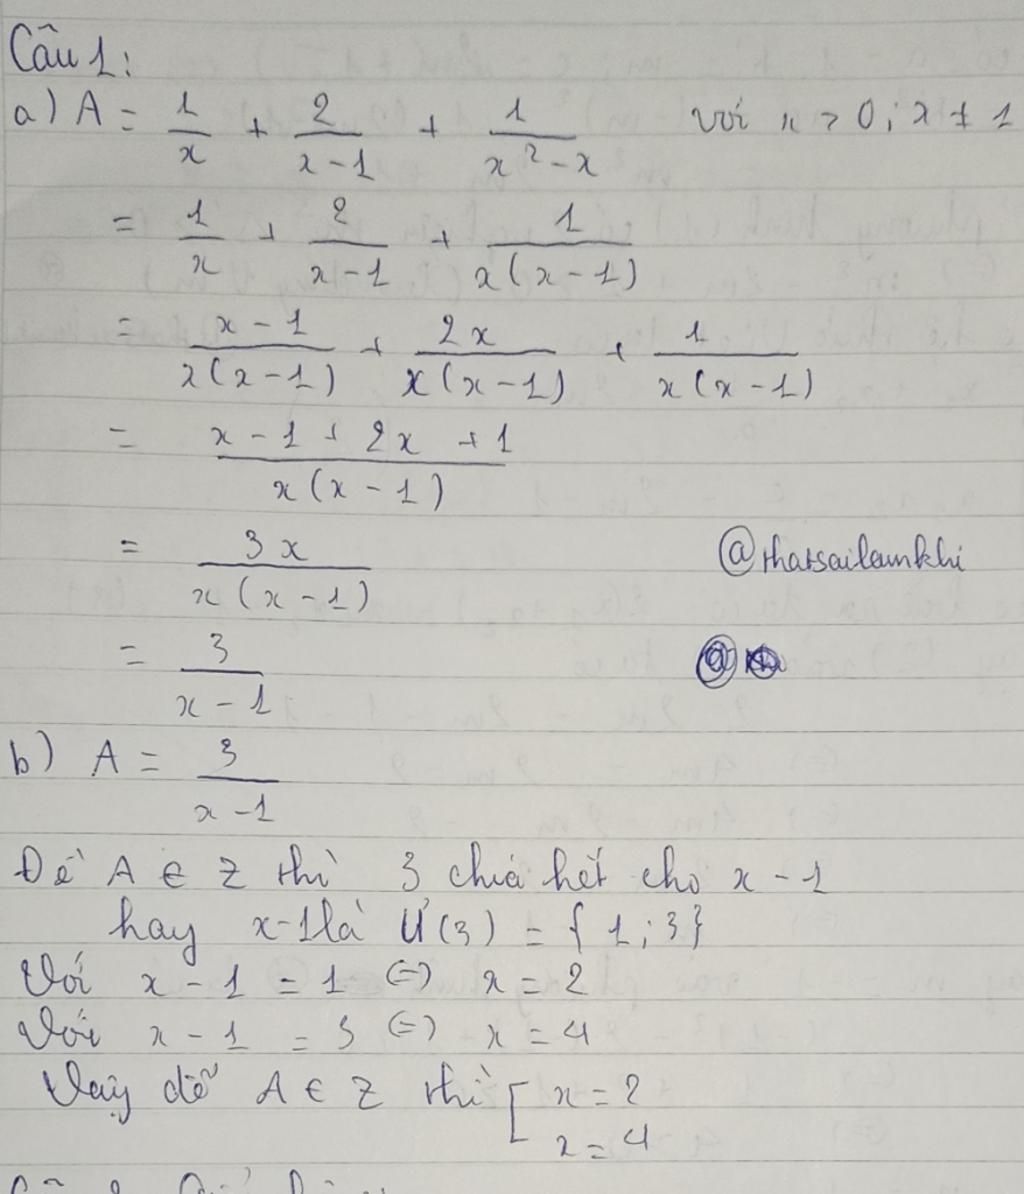 Câu 1:
a) A = 1/x + 2/(x-1) + 1/(x²-x) với x > 0; x ≠ 1
= 1/x + 2/(x-1) + 1/(x(x-1))
= (x-1)/(x(x-1)) + 2x/(x(x-1)) + 1/(x(x-1))
= (x-1+2x+1)/(x(x-1))
= 3x/(x(x-1))
@thatsailamkhi
= 3/(x-1)
b) A = 3/(x-1)
Để A ∈ Z thì 3 chia hết cho x-1
hay x-1 là Ư(3) = {1;3}
Với x-1 = 1 (=) x = 2
Với x-1 = 3 (=) x = 4
Vậy để A ∈ Z thì [ x = 2
x = 4